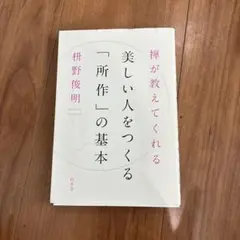 禅が教えてくれる
美しい人をつくる
「所作」の基本
枡野俊明